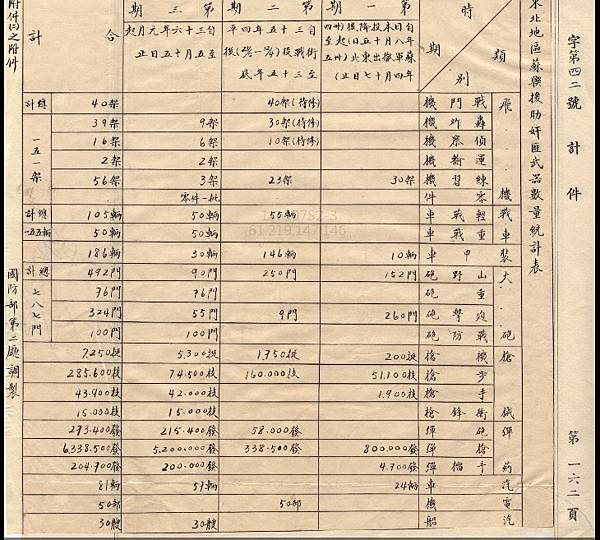 字第四二號 計 件
第一六二頁
東北地區蘇聯援助奸匪武器數量統計表
時期 類別 第一期 第二期 第三期 合計
自日本投降後(卅四年八月十五日起至蘇軍撤出東北(卅五年四月十七日止)
自三十五年四平街戰役後至三十五年底
自三十六年元月起至五月十五日止
飛機 戰鬥機 40架(待修) 40架 總計一五一架
轟炸機 30架(待修) 9架 39架
偵察機 10架(待修) 6架 16架
運輸機 2架 2架
練習機 30架 23架 3架 56架
零件 零件一批
戰車 輕戰車 55輛 50輛 105輛 總計一五五輛
重戰車 50輛 50輛
裝甲車 10輛 146輛 30輛 186輛
大砲 山野砲 152門 250門 90門 492門 總計七八七門
重砲 76門 76門
迫擊砲 260門 9門 55門 324門
戰防砲 100門 100門
槍械 機槍 200挺 1,750挺 5,300挺 7,250挺
步槍 51,100枝 160,000枝 74,500枝 285,600枝
手槍 1,900枝 42,000枝 43,900枝
衝鋒槍 15,000枝 15,000枝
彈藥 砲彈 58,000發 215,400發 273,400發
槍彈 800,000發 338,500發 5,200,000發 6,338,500發
手榴彈 4,700發 200,000發 204,700發
汽車 24輛 57輛 81輛
電機 50部 50部
汽船 30艘 30艘
附件(二)之附件
國防部第二廳調製
61.219.147.146